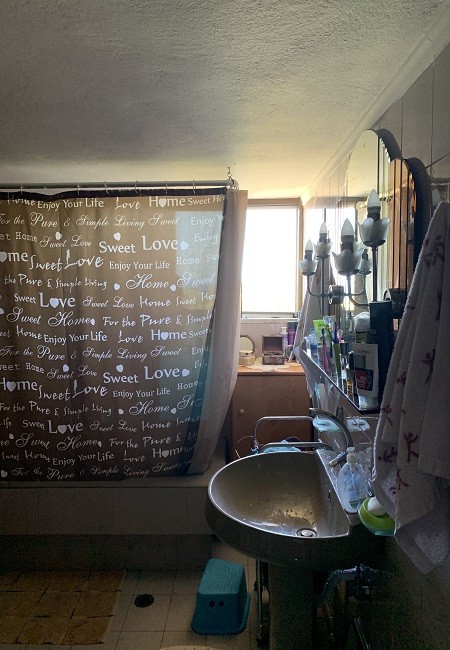 Home Enjoy Your Life Love Home Sweet Home
For the Pure & Simple Living Sweet Enjoy
Sweet Home Sweet Love Sweet Love
Home Sweet Love Enjoy Your Life Home
For the Pure & Simple Living Home
Sweet Love Sweet Love Home Sweet
Sweet Home For the Pure & Simple
Home Enjoy Your Life Love Home
For the Pure & Simple Living Sweet
Sweet Home Sweet Love Sweet Love
Home Sweet Love Enjoy Your Life Home
For the Pure & Simple Living Home
Sweet Love Sweet Love Home
Sweet Home For the Pure
Home Enjoy Your Life Love Home
For the Pure & Simple Living Sweet